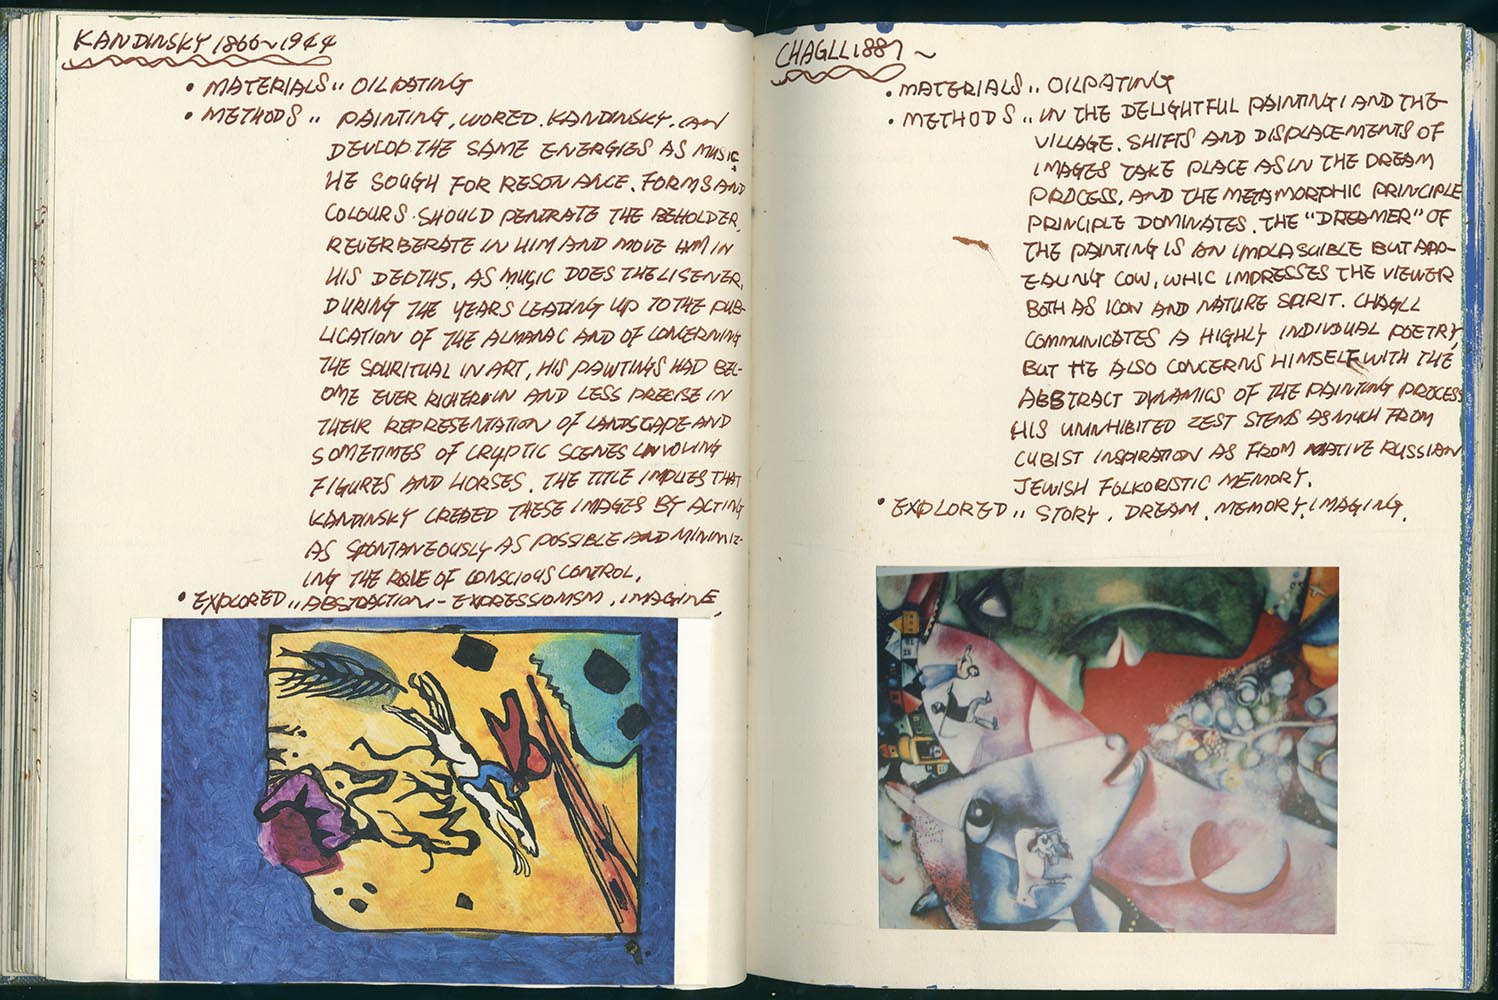 KANDINSKY 1866~1944
• MATERIALS.. OILPATING
• METHODS.. PAINTING, WORED. KANDINSKY. CAN
DEVLOP THE SAME ENERGIES AS MUSIC
HE SOUGH FOR RESONANCE. FORMS AND
COLOURS SHOULD PENTRATE THE BEHOLDER,
REVERBERATE IN HIM AND MOVE HIM IN
HIS DEPTHS, AS MUSIC DOES THE LISENER.
DURING THE YEARS LEADING UP TO THE PUB-
LICATION OF THE ALMANAC AND OF CONCERNING
THE SPIRITUAL IN ART, HIS PAINTINGS HAD BEC-
OME EVER RICHER IN AND LESS PRECISE IN
THEIR REPRESENTATION OF LANDSCAPE AND
SOMETIMES OF CRYPTIC SCENES INVOLVING
FIGURES AND HORSES. THE TITLE IMPLIES THAT
KANDINSKY CREATED THESE IMAGES BY ACTING
AS SPONTANEOUSLY AS POSSIBLE AND MINIMIZ-
ING THE ROLE OF CONSCIOUS CONTROL.
• EXPLORED.. ABSTRACTION - EXPRESSIONISM, IMAGINE.
CHAGLL 1887~
• MATERIALS.. OILPATING
• METHODS.. IN THE DELIGHTFUL PAINTING I AND THE
VILLAGE. SHIFTS AND DISPLACEMENTS OF
IMAGES TAKE PLACE AS IN THE DREAM
PROCESS, AND THE METAMORPHIC PRINCIPLE
PRINCIPLE DOMINATES. THE "DREAMER" OF
THE PAINTING IS AN IMPLASUIBLE BUT APP-
EALING COW, WHIC IMPRESSES THE VIEWER
BOTH AS ICON AND NATURE SPIRIT. CHAGLL
COMMUNICATES A HIGHLY INDIVDUAL POETRY,
BUT HE ALSO CONCERNS HIMSELF WITH THE
ABSTRACT DYNAMICS OF THE PAINTING PROCESS
HIS UNINHIBITED ZEST STEMS AS MUCH FROM
CUBIST INSPIRATION AS FROM NATIVE RUSSIAN
JEWISH FOLKORISTIC MEMORY.
• EXPLORED.. STORY. DREAM. MEMORY. IMAGING.